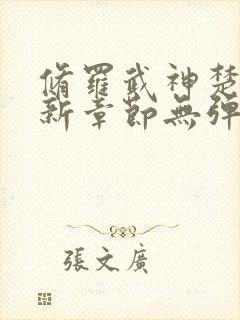 脩羅武神楚
新章節無彈
張文廣